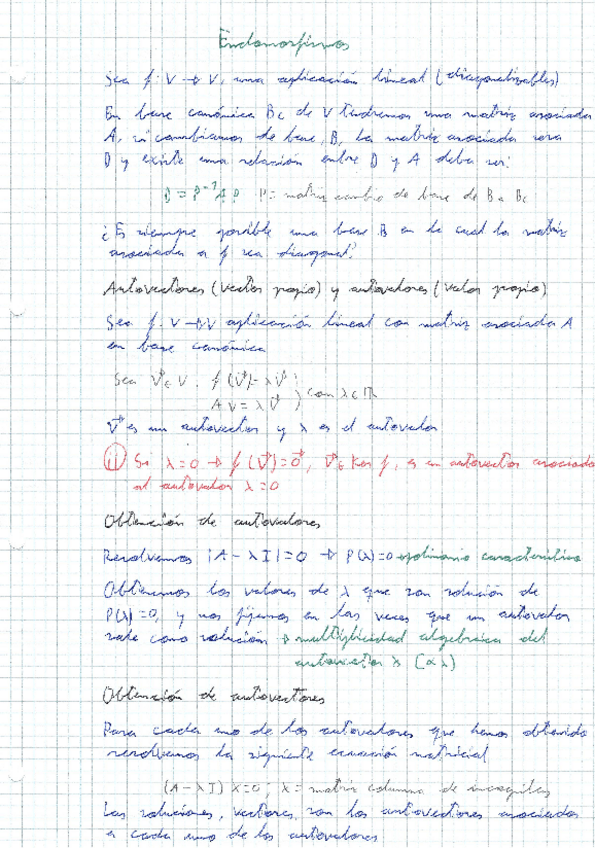 Endomorfismos
Sea f: V → V, una aplicación lineal (diagonalizables)
En base canónica Bc de V tendremos una matriz asociada
A, si cambiamos de base, B, la matriz asociada sera
D y existe una relación entre D y A debe ser:
D = P⁻¹AP P = matriz cambio de base de B a Bc
¿Es siempre posible una base B en la cual la matriz
asociada a f sea diagonal?
Autovectores (vector propio) y autovalores (valor propio)
Sea f: V → V aplicación lineal con matriz asociada A
en base canónica
Sea V⃗ ∈ V. f(V⃗) = λV⃗
AV = λV⃗ ) con λ ∈ ℝ
V⃗ es un autovector y λ es el autovalor
Si λ=0 → f(V⃗)=0⃗, V⃗ ∈ Ker f, es un autovector asociado
al autovalor λ=0
Obtención de autovalores
Resolvemos |A - λI| = 0 → P(λ)=0 polinomio característico
Obtenemos los valores de λ que son solución de
P(λ)=0, y nos fijamos en las veces que un autovalor
sale como solución → multiplicidad algebraica del
autovector λ (αλ)
Obtención de autovectores
Para cada uno de los autovalores que hemos obtenido
resolvemos la siguiente ecuación matricial
(A - λI) X=0; X = matriz columna de incognitas
Las soluciones, vectores, son los autovectores asociados
a cada uno de los autovalores